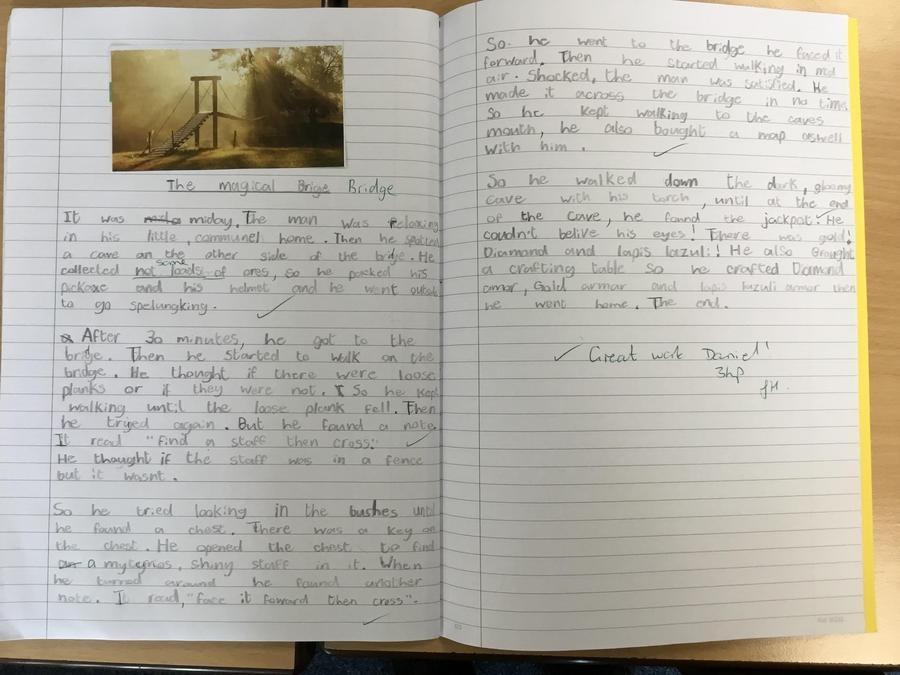 The magical Brige Bridge
It was mid a miday. The man was relaxing
in his little, communel home. Then he spotted
a cave on the other side of the bridge. He
some
collected not loads of ores, so he packed his
pickaxe and his helmet and he went outside
to go spelungking.
After 30 minutes, he got to the
bridge. Then he started to walk on the
bridge. He thought if there were loose
planks or if they were not. I So he kept
walking until the loose plank fell. Then
he tryed again. But he found a note.
It read "find a staff then cross."
He thought if the staff was in a fence
but it wasnt.
So he tried looking in the bushes until
he found a chest. There was a key on
the chest. He opened the chest to find
a myterios, shiny staff in it. When
he turned around he found another
note. It read, "face it foward then cross".
So he went to the bridge he faced it
forward. Then he started walking in mid
air. Shocked, the man was satisfied. He
made it across the bridge in no time.
So he kept walking to the caves
mouth, he also bought a map aswell
with him.
So he walked down the dark, gloomy
cave with his torch, until at the end
of the cave, he found the jackpot. He
coudn't belive his eyes! There was gold!
Diamond and lapis lazuli!! He also brought
a crafting table so he crafted Diamond
amar, Gold armar and lapis lazuli armar then
he went home. The end.
Great work Daniel!
3hp